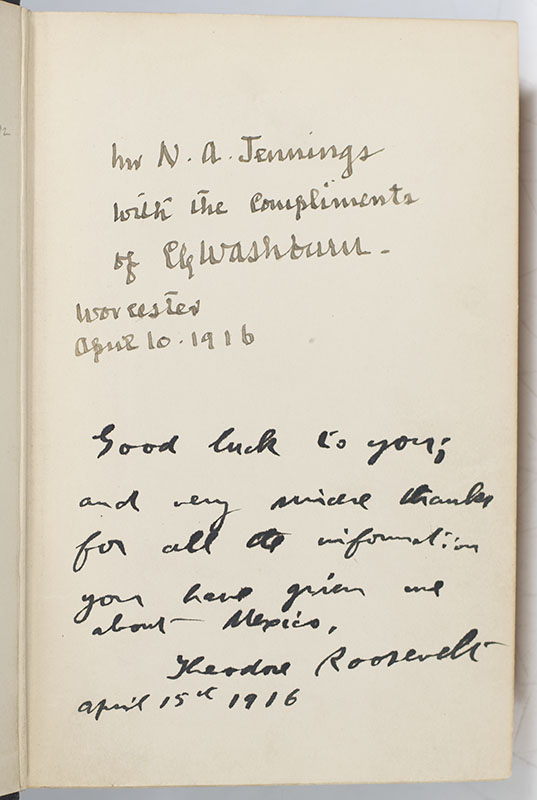 Mr N. A. Jennings
with the compliments
of CGWashburn -
Worcester
April 10. 1916
Good luck to you;
and very sincere thanks
for all the information
you have given me
about Mexico,
Theodore Roosevelt
April 15th 1916